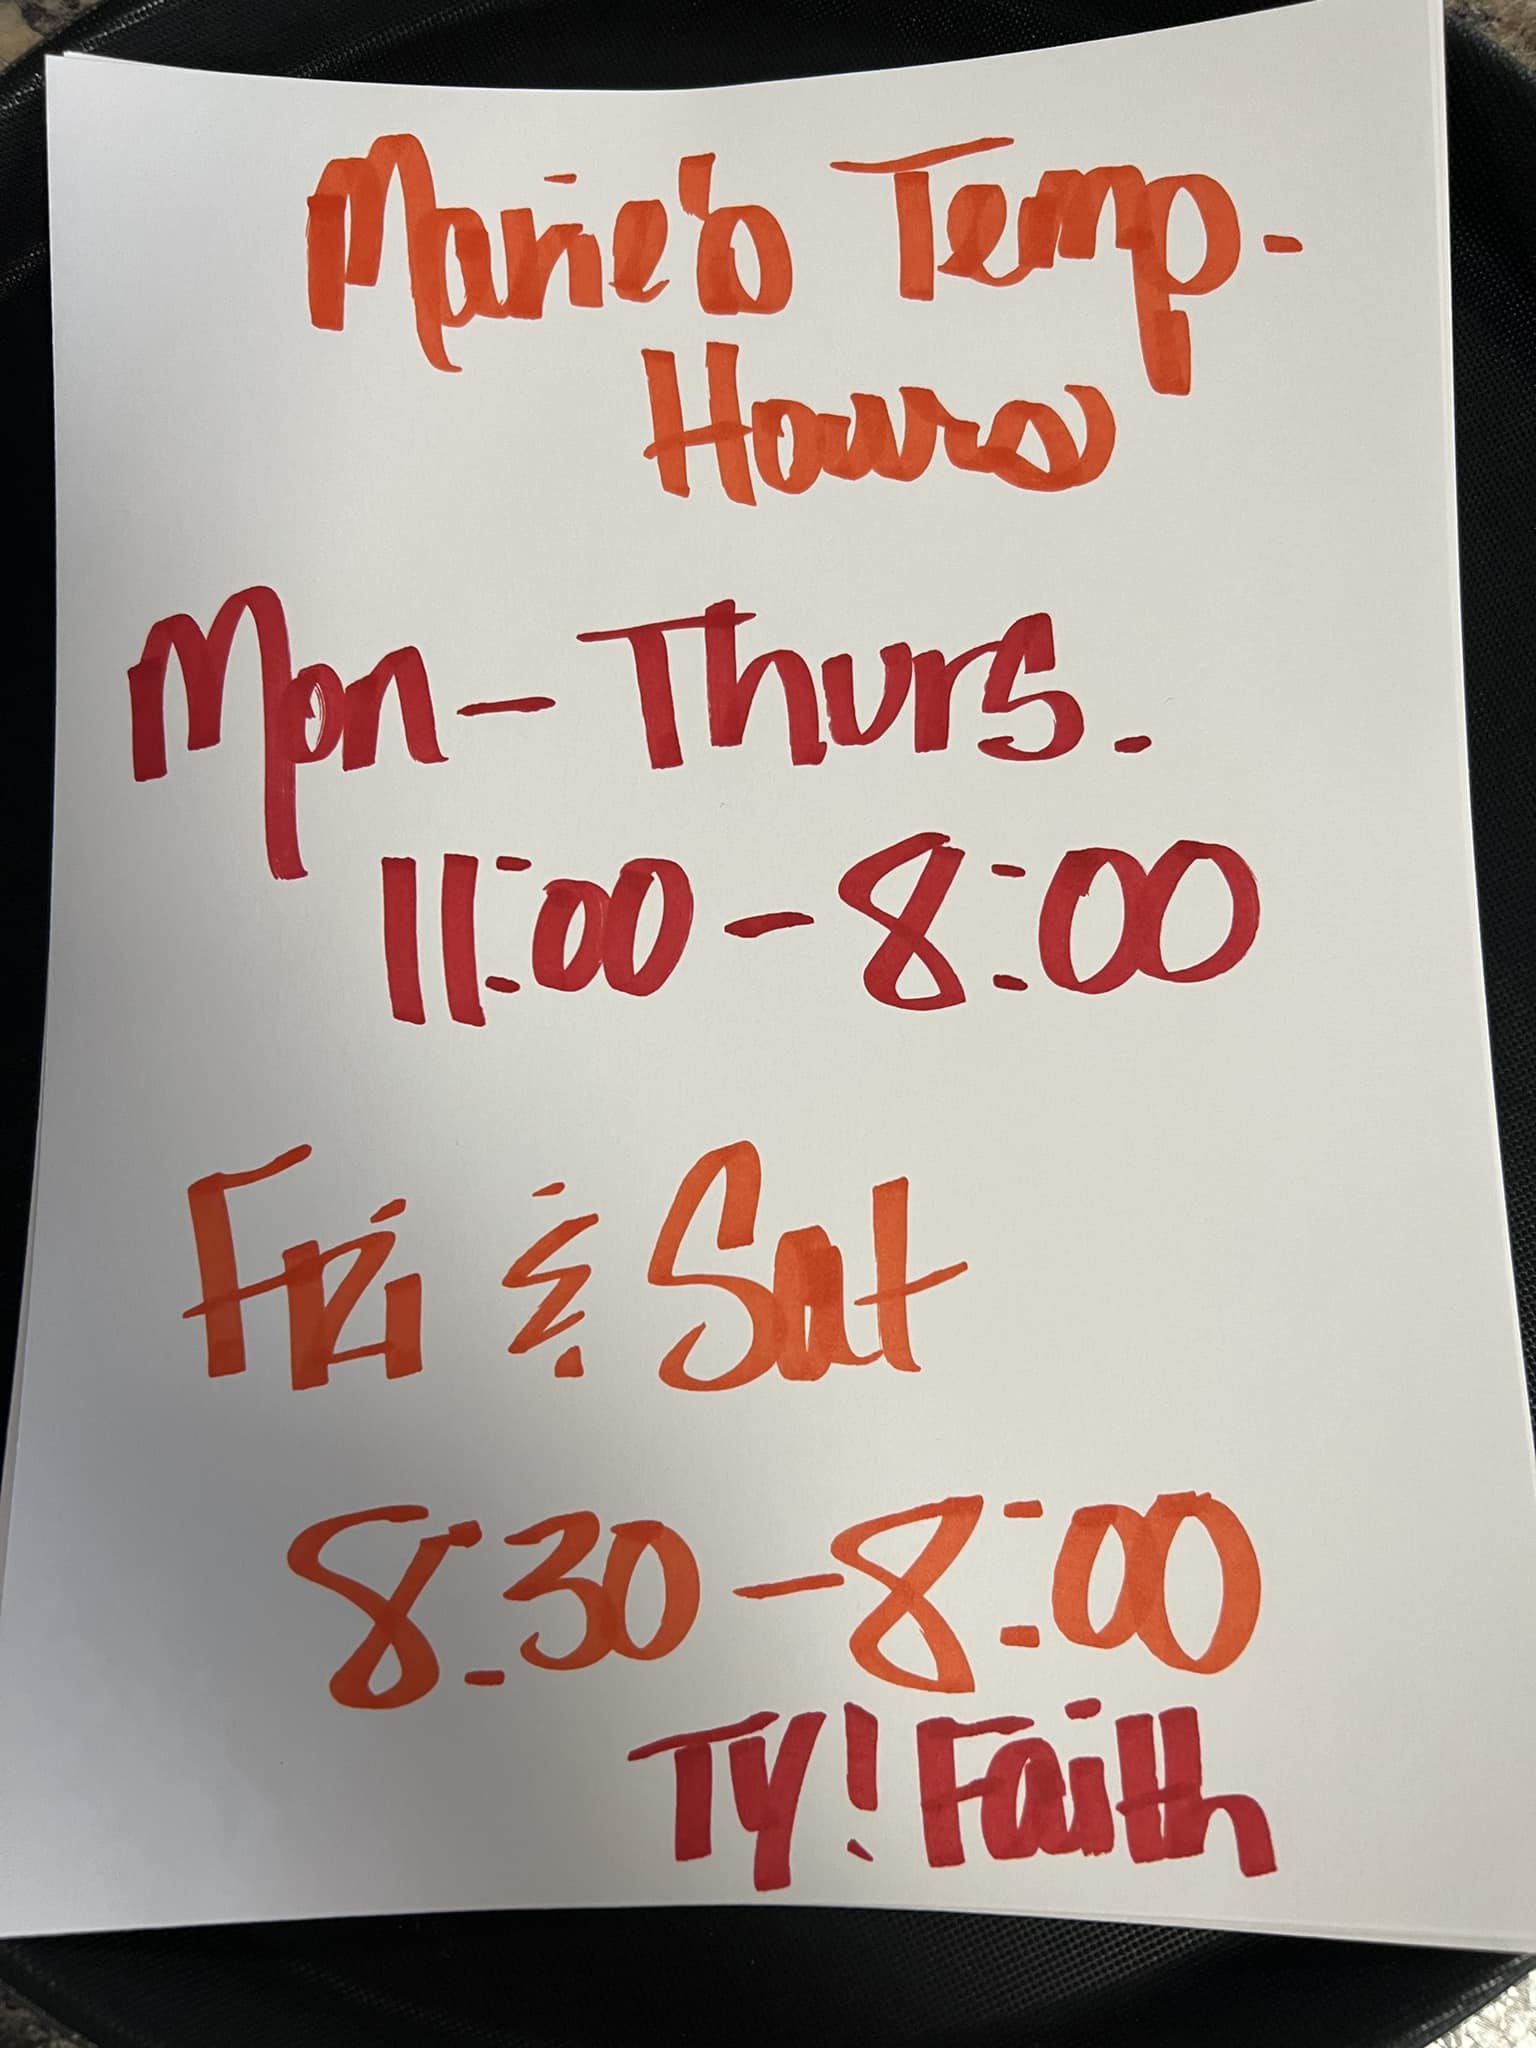 Marie's Temp.
Hours
Mon - Thurs.
11:00 - 8:00
Fri & Sat
8:30 - 8:00
TY! Faith